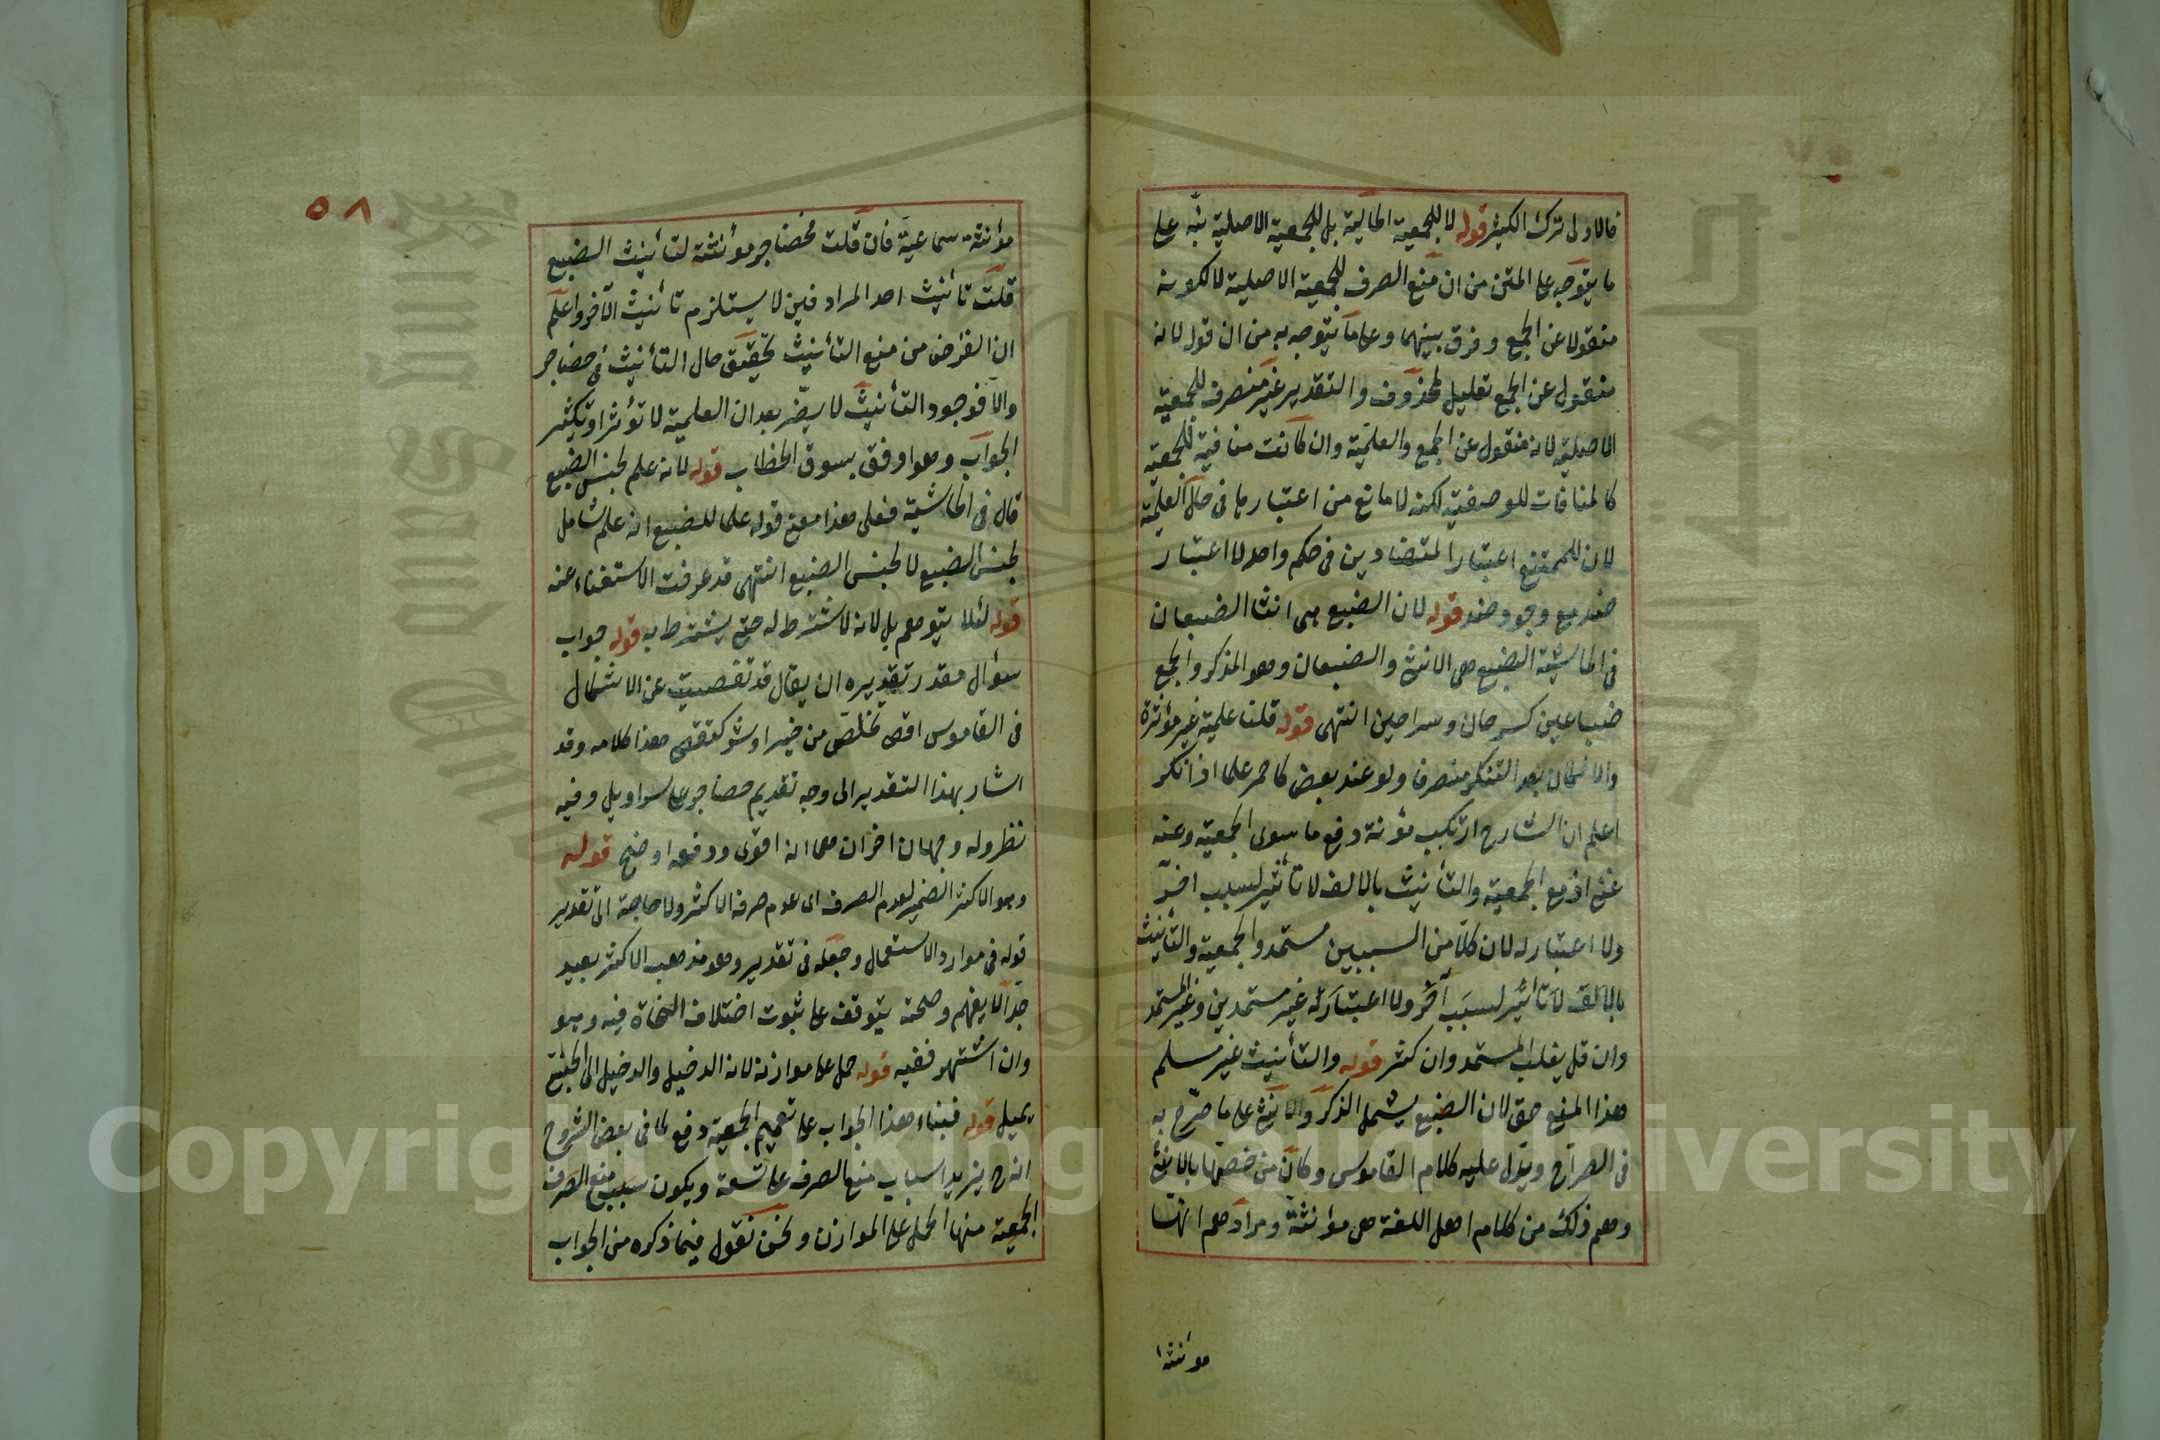 فالاولى ترك الكثير قوله لا للجمعية الحالية بل للجمعية الاصلية نبه على
ما يتوجه على المتن من ان منع الصرف للجمعية الاصلية لا لكونه
منقولا عن الجمع وفرق بينهما وعلى ما يتوجه به من ان قوله لانه
منقول عن الجمع تعليل لمحذوف والتقدير غير منصرف للجمعية
الاصلية لانه منقول عن الجمع والعلمية وان كانت منافية للجمعية
كالمنافات للوصفية لكنه لا مانع من اعتبارها في حال العلمية
لان الممتنع اعتبار المتضادين في حكم واحد لا اعتبار
ضد مع وجود ضد قوله لان الضبع هى انثى الضبعان
في الحاشية الضبع هى الانثى والضبعان وهو المذكر والجمع
ضباعين كسرحان وسراحين انتهى قوله قلنا علمية غير مؤثرة
والا لكان بعد التنكير منصرفا ولو عند بعض كاحمر علما اذا نكر
اعلم ان الشارح ارتكب مؤنة دفع ما سوى الجمعية وعنه
غنى اذ مع الجمعية والتأنيث بالالف لا تأثير لسبب اخر
ولا اعتبار له لان كلا من السببين مستمد والجمعية والتأنيث
بالالف لا تأثير لسبب آخر ولا اعتبار له غير مستمدين وغير المستمد
وان قل يغلب المستمد وان كثر قوله والتأنيث غير مسلم
هذا المنع حق لان الضبع يشمل الذكر والانثى على ما صرح به
في الصراح ويدل عليه كلام القاموس وكان من خصها بالانثى
وهم ذلك من كلام اهل اللغة هى مؤنثة ومرادهم انها
مؤنثة
٥٨
مؤنثة سماعية فان قلت فحضاجر مؤنثة لتأنيث الضبع
قلت تأنيث احد المرادفين لا يستلزم تأنيث الآخر واعلم
ان الغرض من منع التأنيث تحقيق حال التأنيث في حضاجر
والا فوجود التأنيث لا يضر بعد ان العلمية لا تؤثر او تكثير
الجواب وهو اوفق بسوق الخطاب قوله لانه علم لجنس الضبع
قال في الحاشية فعلى هذا معنى قوله علما للضبع انه علم شامل
لجنس الضبع لا لجنس الضبع انتهى قد عرفت الاستغناء عنه
قوله لئلا يتوهم بل لانه لا شرط له حتى يشترط به قوله جواب
سؤال مقدر تقديره ان يقال قد تفصيت عن الاشكال
في القاموس افصى تخلص من خير او شر كتفصى هذا كلامه وقد
اشار بهذا التقدير الى وجه تقديم حضاجر على سراويل وفيه
نظر وله وجهان اخران هما انه اقوى ودفعه اوضح قوله
وهو الاكثر الضمير لعدم الصرف اى عدم صرفه الاكثر ولا حاجة الى تقدير
قوله في موارد الاستعمال وجعله في تقدير وهو مذهب الاكثر بعيد
جدا لا يفهم وصحته يتوقف على ثبوت اختلاف النحاة فيه وهو
وان اشتهر ففيه قوله حمل على موازنه لانه الدخيل والدخيل الى الجنس
يميل قوله فبناء هذا الجواب على تعميم الجمعية دفع لما في بعض الشروح
انه ح يزيد اسباب منع الصرف على تسعة ويكون سبب منع الصرف
الجمعية منها الحمل على الموازن ونحن نقول فيما ذكره من الجواب
Copyright © King Saud University